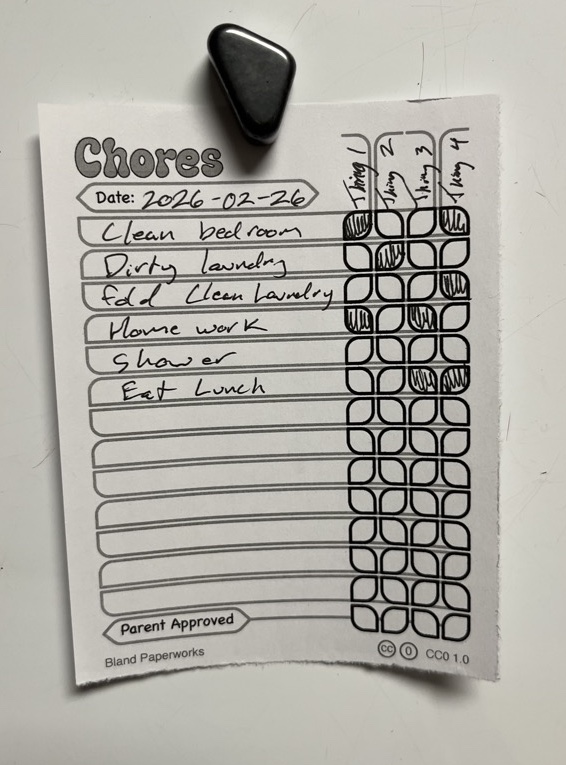 Chores
Thing 1 Thing 2 Thing 3 Thing 4
Date: 2026-02-26
Clean bedroom
Dirty laundry
fold Clean Laundry
Home work
Shower
Eat Lunch
Parent Approved
Bland Paperworks
cc 0 CC0 1.0